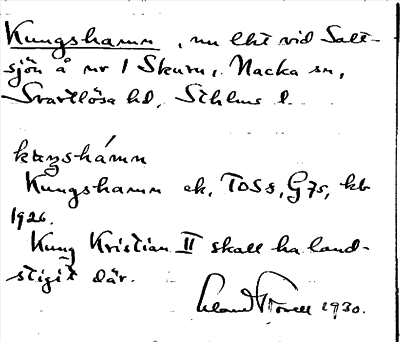 Kungshamn, nu lht vid Salt-
sjön å nr 1 Skuru, Nacka sn,
Svartlösa hd, Sthlms l.
kuŋshámn
Kungshamn ek, TOSS, G75, kb
1926.
Kung Kristian II skall ha land-
stigit där.
1930.